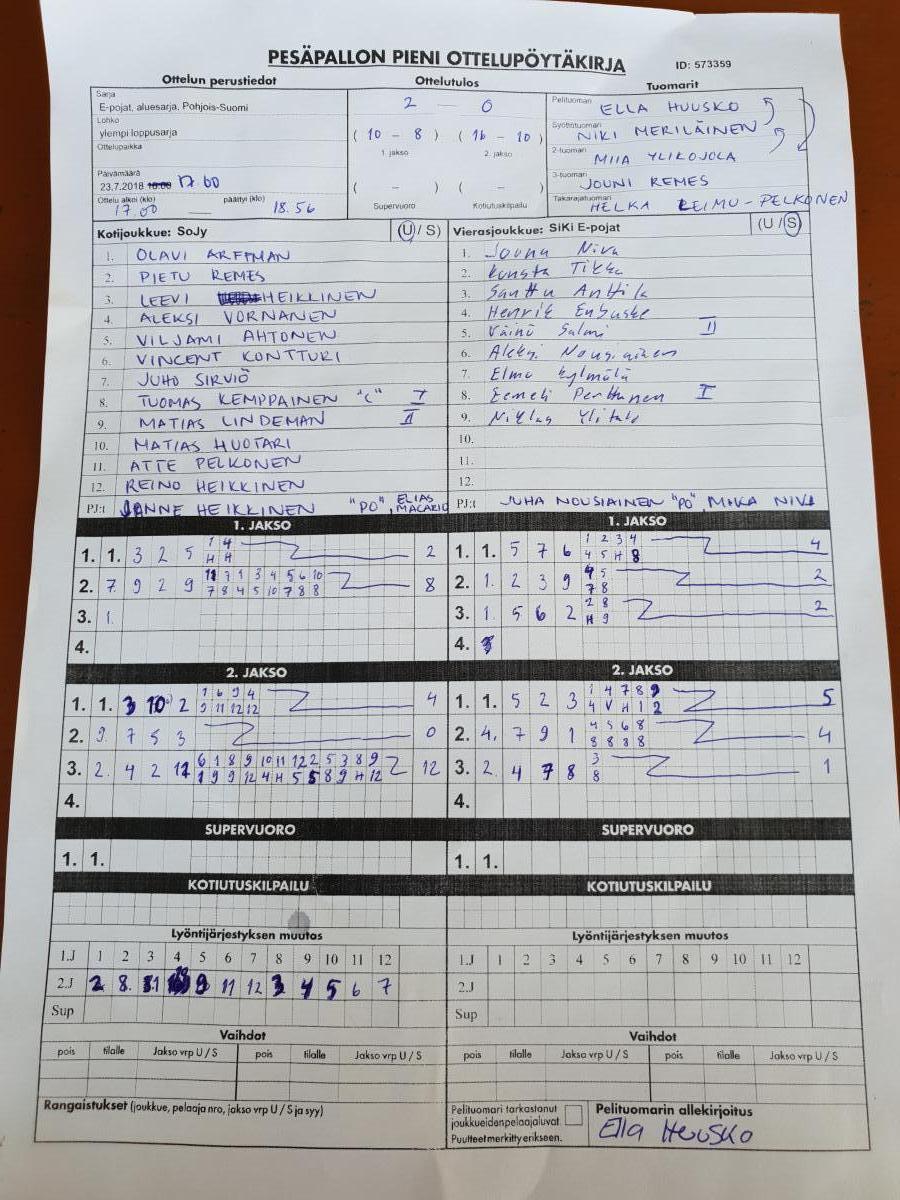 PESÄPALLON PIENI OTTELUPÖYTÄKIRJA
ID: 573359
Ottelun perustiedot
Ottelutulos
Tuomarit
Sarja
E-pojat, aluesarja, Pohjois-Suomi
Lohko
ylempi loppusarja
Ottelupaikka
Päivämäärä
23.7.2018 17.00
Ottelu alkoi (klo) päättyi (klo)
17.00 18.56
2 - 0
( 10 - 8 ) ( 16 - 10 )
1. jakso 2. jakso
( - ) ( - )
Supervuoro Kotiutuskilpailu
Pelituomari ELLA HUUSKO
Syöttötuomari NIKI MERILÄINEN
2-tuomari MIIA YLIKOJOLA
3-tuomari JOUNI REMES
Takarajatuomari HELKA LEIMU-PELKONEN
Kotijoukkue: SoJy (U / S)
1. OLAVI ARFFMAN
2. PIETU REMES
3. LEEVI HEIKKINEN
4. ALEKSI VORNANEN
5. VILJAMI AHTONEN
6. VINCENT KONTTURI
7. JUHO SIRVIÖ
8. TUOMAS KEMPPAINEN "C" I
9. MATIAS LINDEMAN II
10. MATIAS HUOTARI
11. ATTE PELKONEN
12. REINO HEIKKINEN
PJ:t JANNE HEIKKINEN "PO", ELIAS MACARIO
Vierasjoukkue: SiKi E-pojat (U / S)
1. Joona Niva
2. Konsta Tikka
3. Santtu Anttila
4. Henrik Enbuske
5. Väinö Salmi II
6. Aleksi Nousiainen
7. Elmo Kylmälä
8. Eemeli Perttunen I
9. Niklas Ylitalo
10.
11.
12.
PJ:t JUHA NOUSIAINEN "PO", MIKA NIVA
1. JAKSO
1. 1. 3 2 5 1 4 2
H H
2. 7. 9 2 9 11 7 1 3 4 5 6 10 8
7 8 4 5 10 7 8 8
3. 1.
4.
1. JAKSO
1. 1. 5 7 6 1 2 3 4 4
4 5 H 8
2. 1. 2 3 9 4 5 2
7 8
3. 1. 5 6 2 2 8 2
H 9
4.
2. JAKSO
1. 1. 3 10 2 1 6 9 4 4
9 11 12 12
2. 9. 7 5 3 0
3. 2. 4 2 12 6 1 8 9 10 11 12 2 5 3 8 9 12
1 9 9 12 4 H 5 5 8 9 H 12
4.
2. JAKSO
1. 1. 5 2 3 1 4 7 8 9 5
4 V H 1 2
2. 4. 7 9 1 4 5 6 8 4
8 8 8 8
3. 2. 4 7 8 3 1
8
4.
SUPERVUORO
1. 1.
SUPERVUORO
1. 1.
KOTIUTUSKILPAILU
KOTIUTUSKILPAILU
Lyöntijärjestyksen muutos
1.J 1 2 3 4 5 6 7 8 9 10 11 12
2.J 2 8. 1 9 11 12 3 4 5 6 7
Sup
Lyöntijärjestyksen muutos
1.J 1 2 3 4 5 6 7 8 9 10 11 12
2.J
Sup
Vaihdot
pois tilalle Jakso vrp U / S pois tilalle Jakso vrp U / S
Vaihdot
pois tilalle Jakso vrp U / S pois tilalle Jakso vrp U / S
Rangaistukset (joukkue, pelaaja nro, jakso vrp U / S ja syy)
Pelituomari tarkastanut
joukkueiden pelaajaluvat.
Puutteet merkitty erikseen.
Pelituomarin allekirjoitus
Ella Huusko